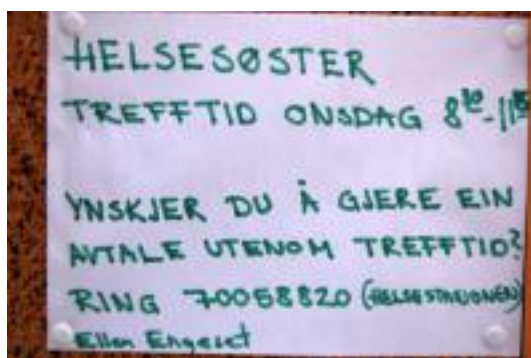 HELSESØSTER
TREFFTID ONSDAG
YNSKJER DU Å GJERE EIN
AVTALE UTENOM TREFFTID?
RING 70058820 (HELSESTASJONEN)
Ellen Engeset